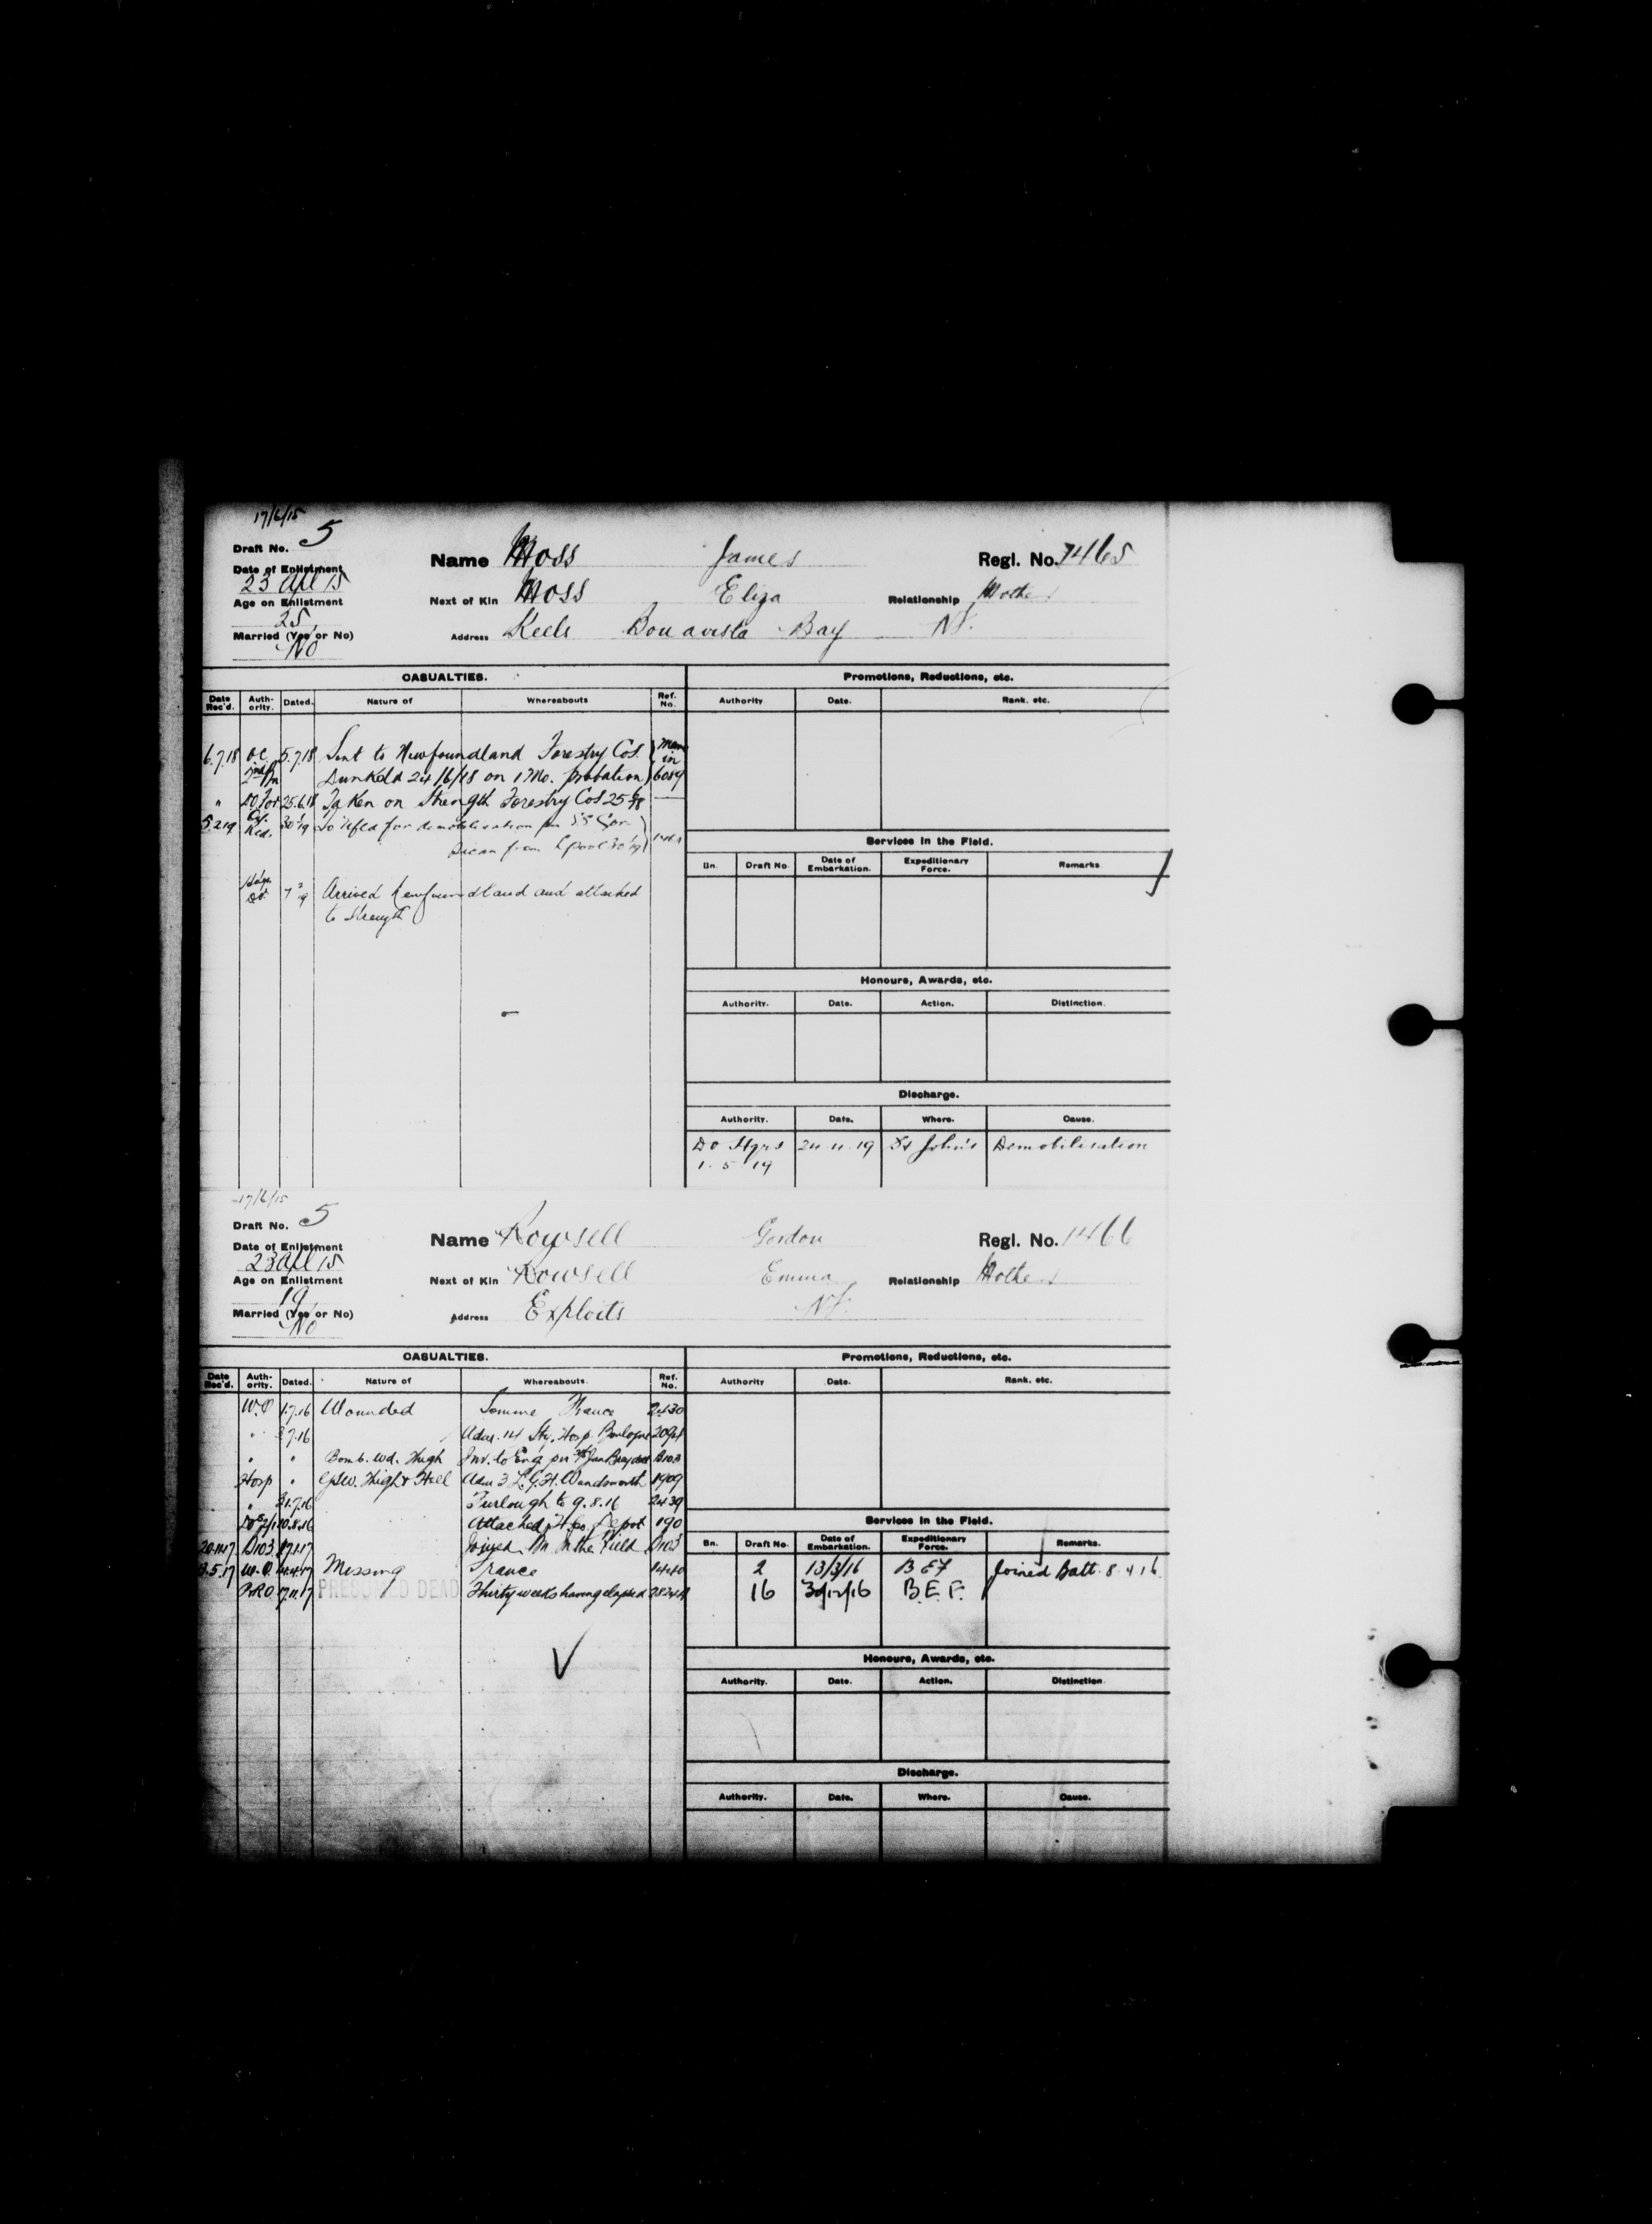 17/6/15
Draft No. 5
Name Moss James Regl. No. 1465
Date of Enlistment
23 Apl 15
Next of Kin Moss Eliza Relationship Mother
Age on Enlistment
25
Address Keels Bonavista Bay Nf.
Married (Yes or No)
No
CASUALTIES. Promotions, Reductions, etc.
Date Rec'd. Auth-ority. Dated. Nature of Whereabouts Ref. No. Authority Date. Rank. etc.
6.7.18 O.C. 5.7.18 Sent to Newfoundland Forestry Cos. Mem
2nd Bn Dunkeld 24/6/18 on 1 Mo. probation in 6089
" DO For 25.6.18 Taken on Strength Forestry Cos 25/6/18
5.2.19 Red. 30/1/19 To Nfld for demobilisation per SS Cor-
sican from L'pool 30/1/19
Services in the Field.
Bn. Draft No. Date of Embarkation. Expeditionary Force. Remarks.
DO 7/2/19 Arrived Newfoundland and attached
to Strength
Honours, Awards, etc.
Authority. Date. Action. Distinction.
Discharge.
Authority. Date. Where. Cause.
DO Hqrs 24.4.19 St John's Demobilisation
1.5.19
17/6/15
Draft No. 5
Name Rowsell Gordon Regl. No. 1466
Date of Enlistment
23 Apl 15
Next of Kin Rowsell Emma Relationship Mother
Age on Enlistment
19
Address Exploits Nf.
Married (Yes or No)
No
CASUALTIES. Promotions, Reductions, etc.
Date Rec'd. Auth-ority. Dated. Nature of Whereabouts. Ref. No. Authority Date. Rank. etc.
W.O 1.7.16 Wounded Somme France 2430
" 3.7.16 Adm. 14 Sty. Hosp Boulogne
" " Bomb. wd. Thigh Inv. to Eng per B103
Hosp " GSW. Thigh & Heel Adm 3 L.G.H. Wandsworth 1909
" 31.7.16 Furlough to 9.8.16 2439
10.8.16 Attached Depot 190
Services in the Field.
20.1.17 B103 17.1.17 Joined Bn in the Field B103
Bn. Draft No. Date of Embarkation. Expeditionary Force. Remarks.
3.5.17 W.O. 14.4.17 Missing France 1440
2 13/3/16 BEF Joined Batt. 8.4.16.
PRO 17.11.17 PRESUMED DEAD Thirty weeks having elapsed
16 30/12/16 B.E.F.
Honours, Awards, etc.
Authority. Date. Action. Distinction.
Discharge.
Authority. Date. Where. Cause.